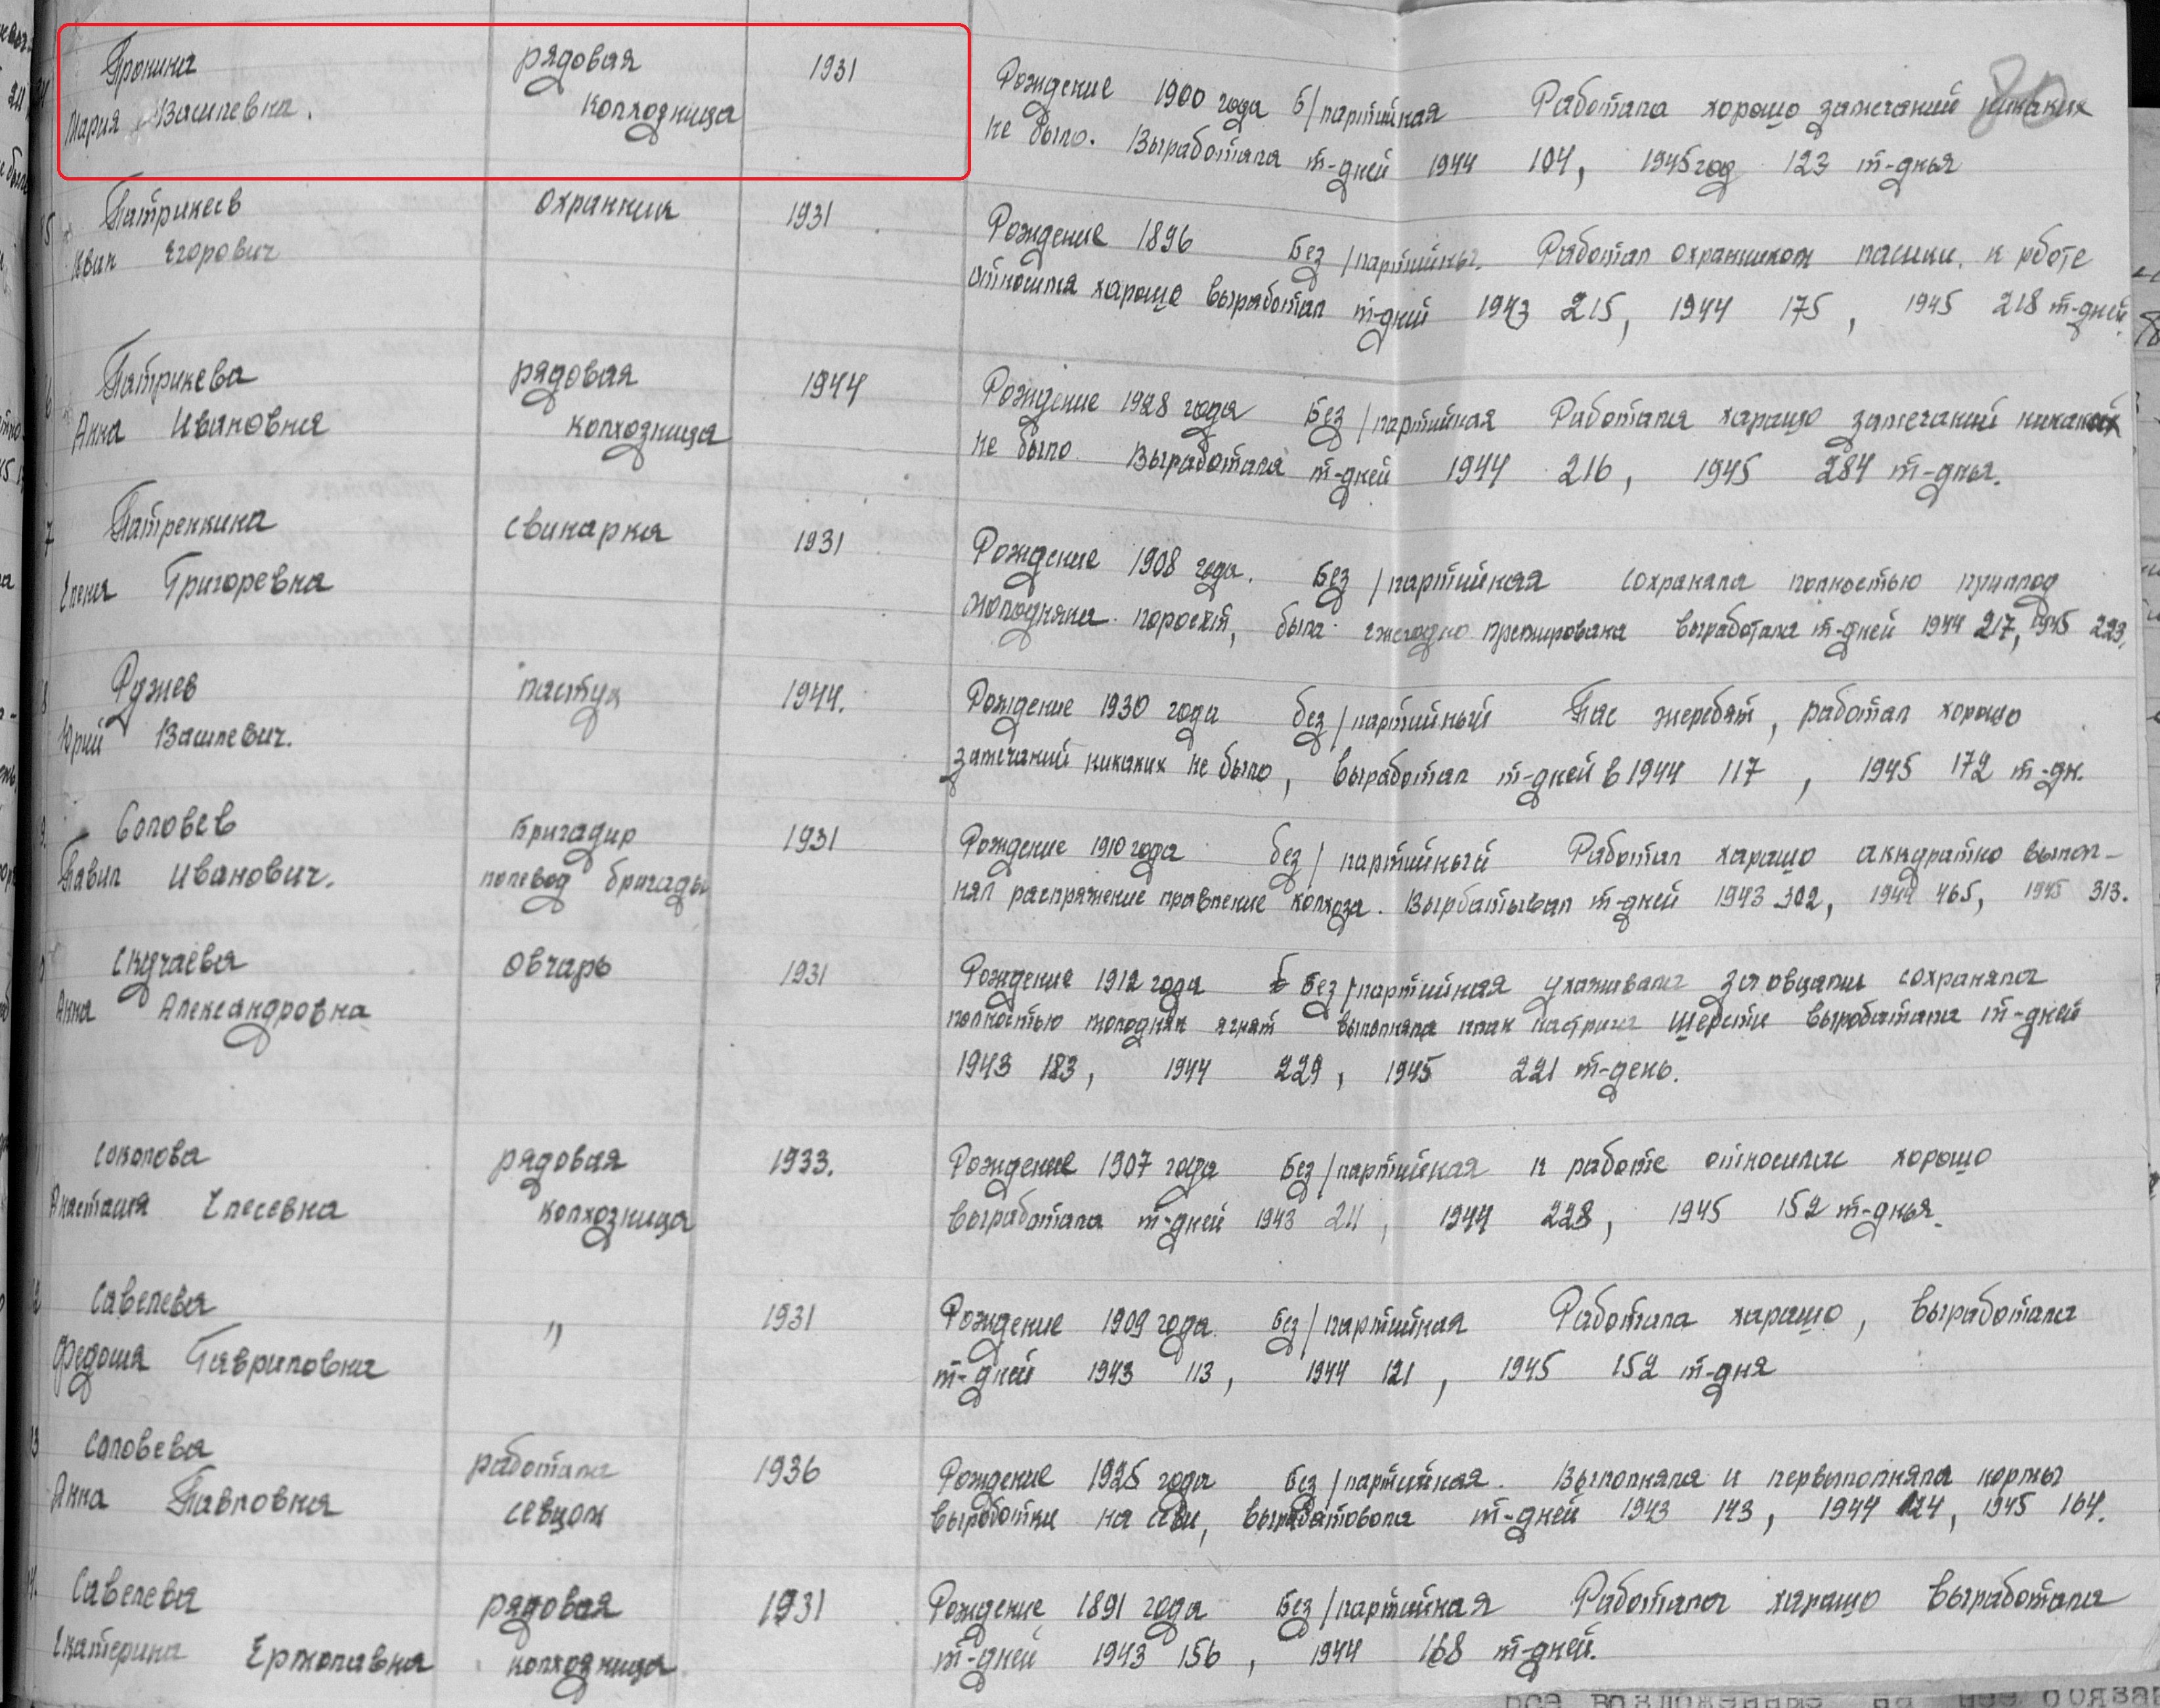 80
Пронина рядовая 1931 Рождение 1900 года Б/партийная Работала хорошо замечаний никаких
Мария Василевна. колхозница не было. Выработала т-дней 1944 104, 1945 год 123 т-дья
Патрикеев охранник 1931 Рождение 1896 Без/партийны. Работал охранником пасики. к рботе
Иван Егорович относился харошо выработал т-дней 1943 215, 1944 175, 1945 218 т-дней
Патрикева рядовая 1944 Рождение 1928 года Без/партийная Работала харашо замечаний никаких
Анна Ивановна колхозница не было Выработала т-дней 1944 216, 1945 284 т-дня.
Патренкина свинарка 1931 Рождение 1908 года. Без/партийная сохраняла полностью приплод
Елена Григоревна молодняка поросят, была ежегодно премирована выработала т-дней 1944 217, 1945 223.
Рджев пастух 1944. Рождение 1930 года без/партийный Пас жеребят, работал хорошо
Юрий Василевич. замечаний никаких не было, выработал т-дней в 1944 117, 1945 172 т-дн.
Соловев Бригадир 1931 Рождение 1910 года без/партийный Работал харашо аккдратно выпол-
Павил Иванович. полевод бригады нял распряжение правление колхоза. Вырбатывал т-дней 1943 302, 1944 465, 1945 313.
Скдчаева Овчарь 1931 Рождение 1912 года Без/партийная ухаживала за овцами сохраняла
Анна Александровна полностью молодняк ягнят выполняла план настрига шерсти выработала т-дней
1943 183, 1944 229, 1945 221 т-день.
Соколова рядовая 1933. Рождение 1907 года Без/партийная к работе относилась хорошо
Анастасия Елесевна колхозница выработала т-дней 1943 211, 1944 228, 1945 152 т-днья.
Савелева " 1931 Рождение 1909 года Без/партийная Работала харашо, выработала
Федосия Гавриловна т-дней 1943 113, 1944 121, 1945 152 т-дня
Соловева работала 1936 Рождение 1925 года Без/партийная. Выполняла и первыполняла нормы
Анна Павловна севцом выработки на севи, вырабатовола т-дней 1943 143, 1944 124, 1945 164.
Савелева рядовая 1931 Рождение 1891 года Без/партийная Работала харашо выработала
Екатерина Ермолавна колхозница т-дней 1943 156, 1944 168 т-дней.